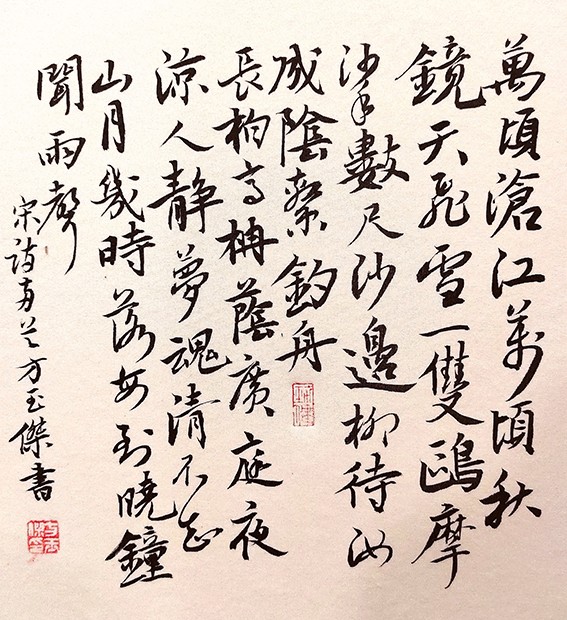 萬頃滄江萬頃秋
鏡天飛雪一雙鷗摩
挲數尺沙邊柳待汝
成陰繫釣舟
長柏高枏蔭廣庭夜
涼人靜夢魂清不知
山月幾時落每到曉鐘
聞雨聲
宋詩两首方玉傑書